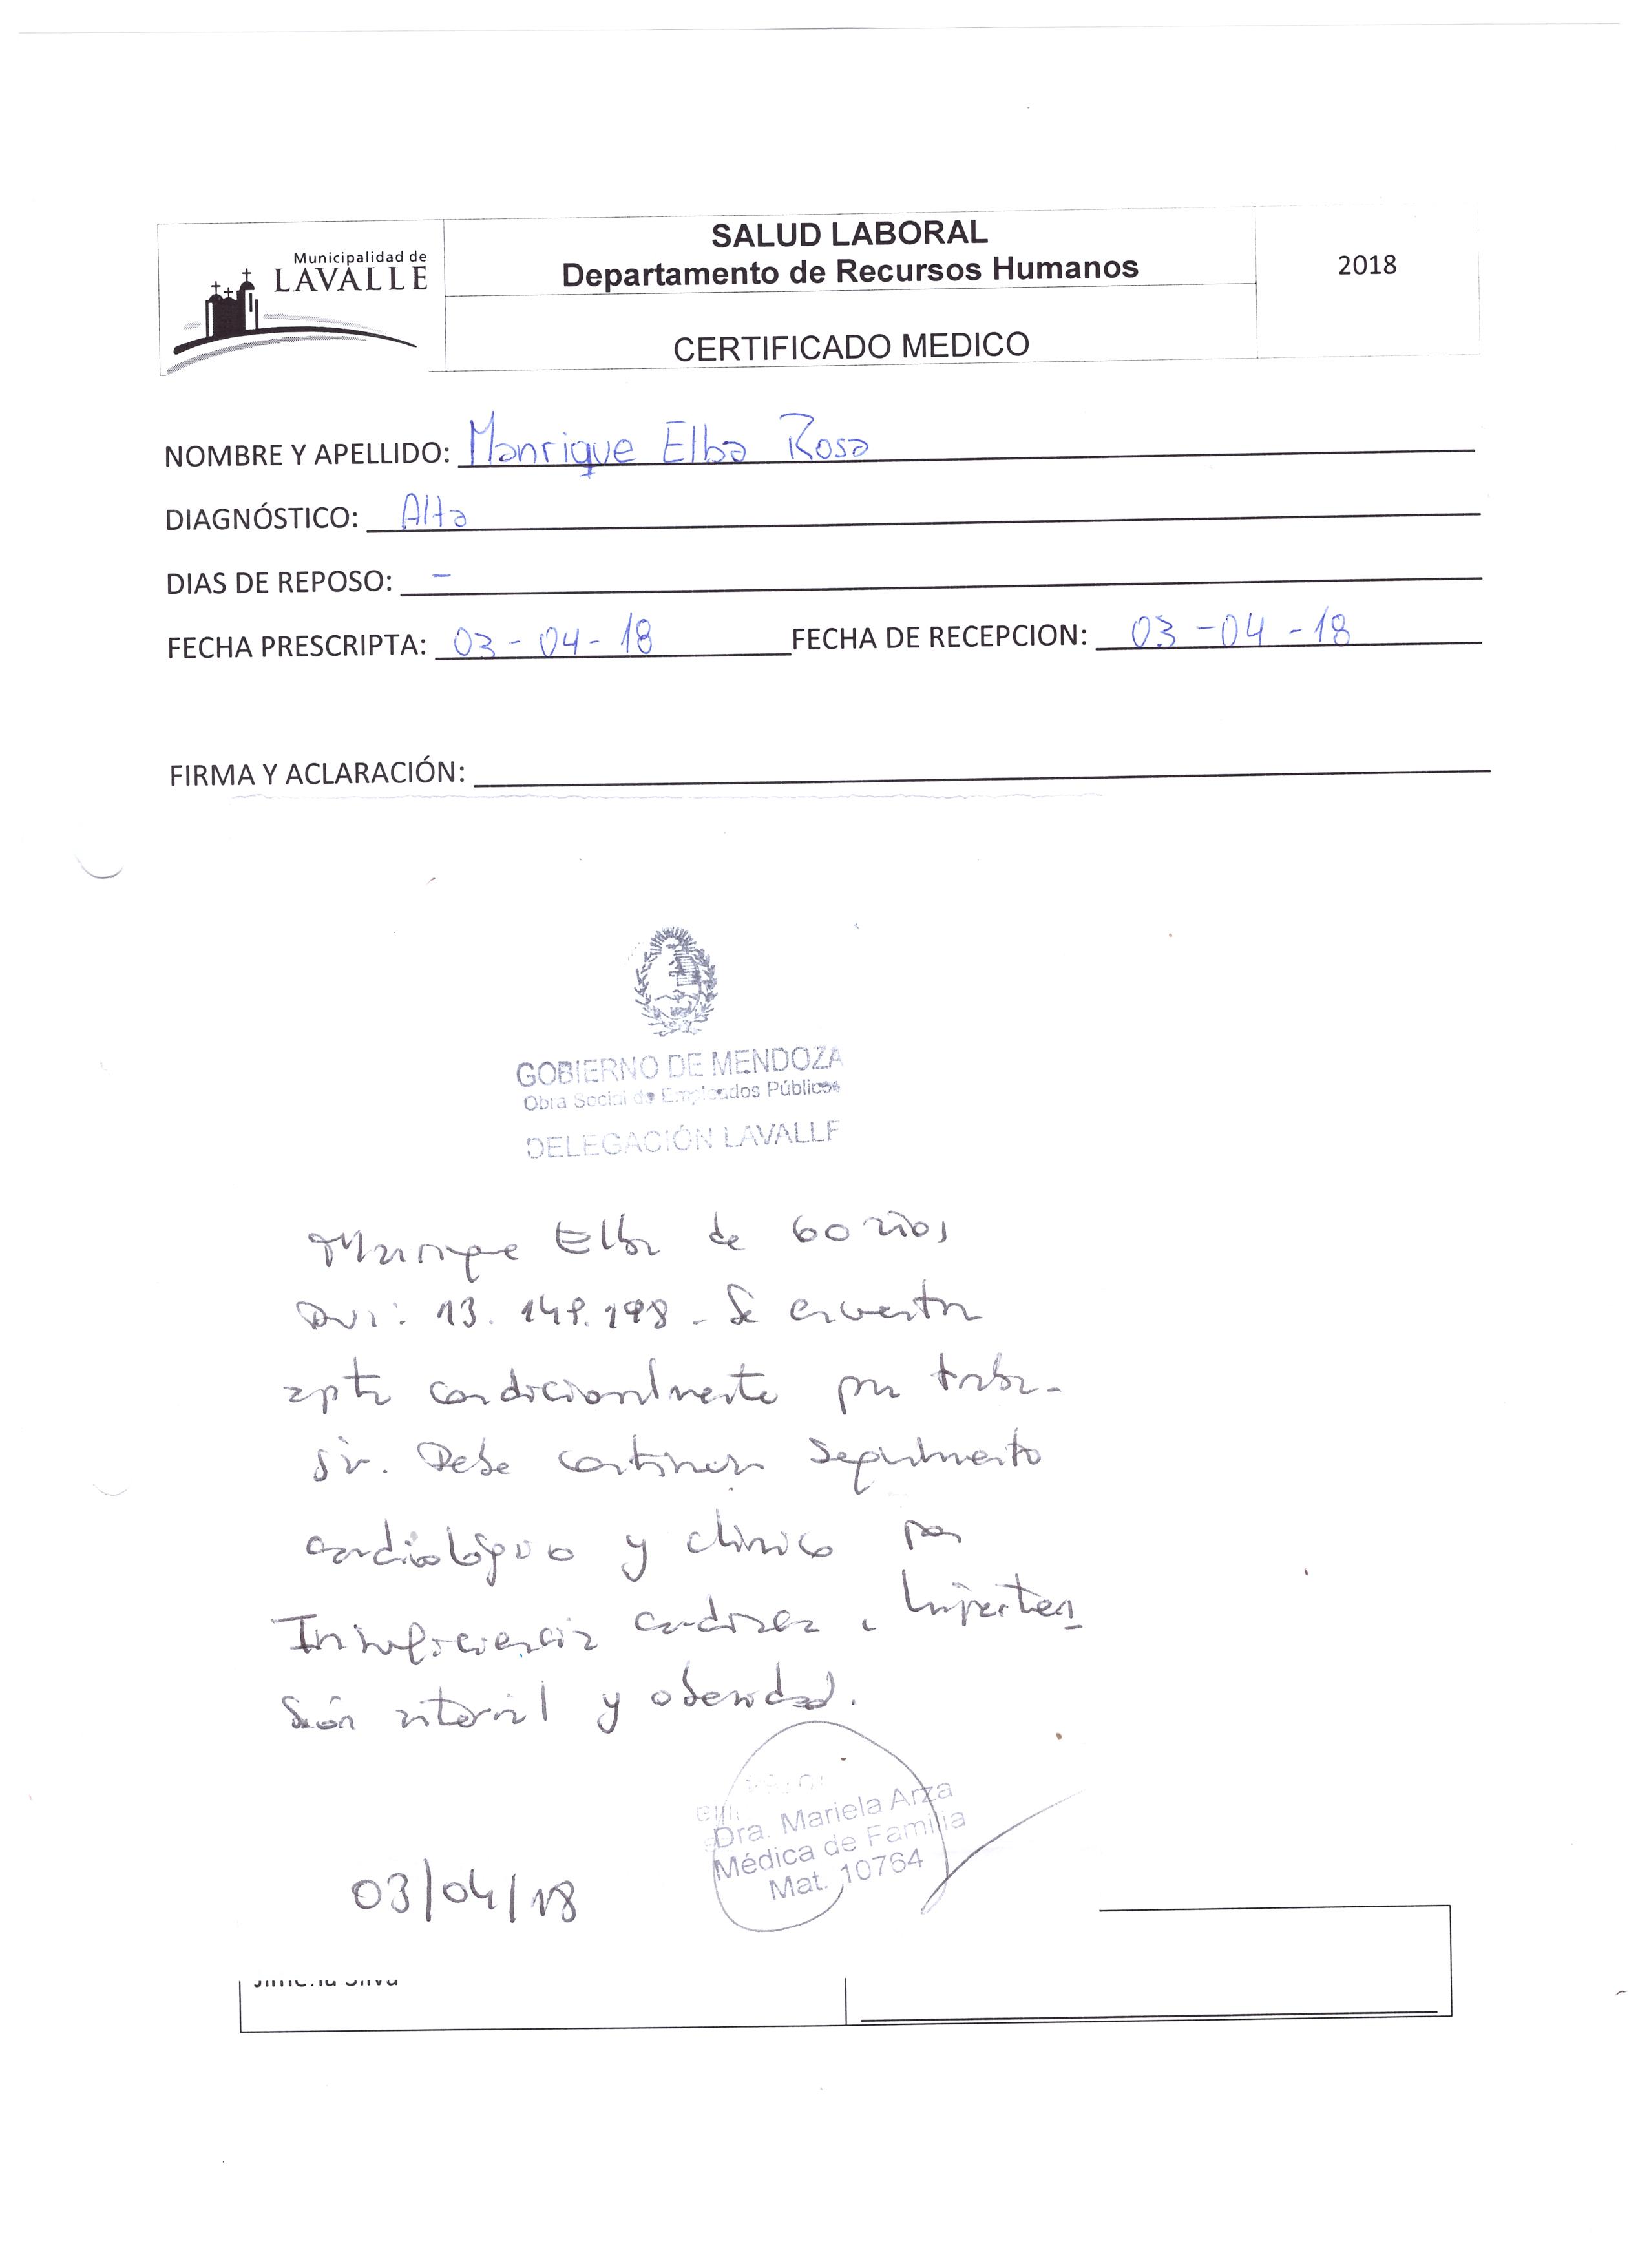 Municipalidad de
LAVALLE
SALUD LABORAL
Departamento de Recursos Humanos
2018
CERTIFICADO MEDICO
NOMBRE Y APELLIDO: Manrique Elba Rosa
DIAGNÓSTICO: Alta
DIAS DE REPOSO: -
FECHA PRESCRIPTA: 03-04-18 FECHA DE RECEPCION: 03-04-18
FIRMA Y ACLARACIÓN:
GOBIERNO DE MENDOZA
Obra Social de Empleados Públicos
DELEGACIÓN LAVALLE
Manrique Elba de 60 años
DNI: 13. - Se encuentra
apta condicionalmente para traba-
jar. Debe continuar seguimiento
cardiológico y clínico por
Insuficiencia cardíaca, hiperten-
sión arterial y obesidad.
Dra. Mariela Arza
Médica de Familia
Mat. 10764
03/04/18
Jimena Silva